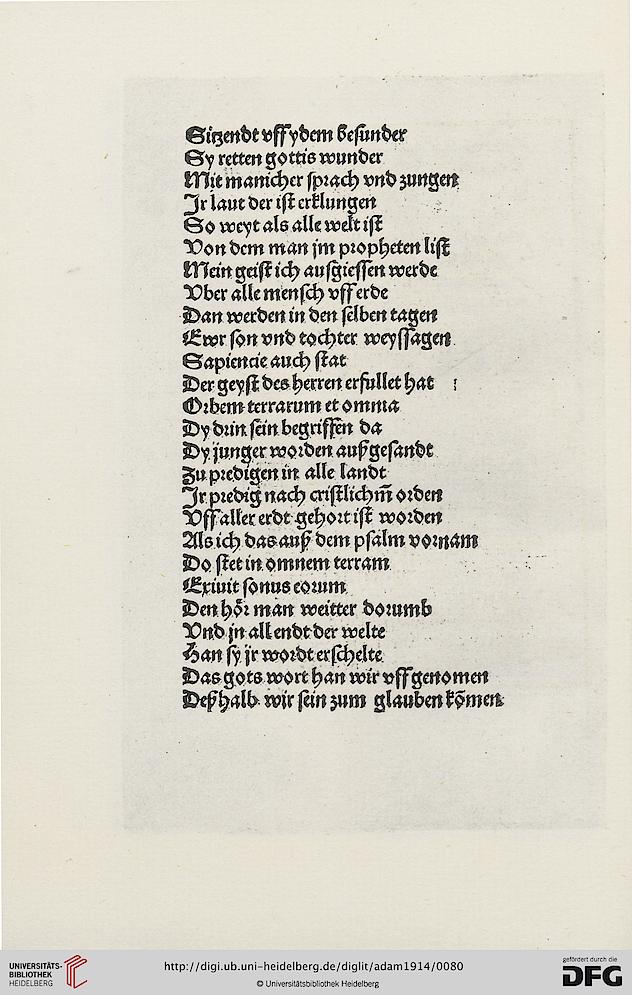 Sitzendt vff ydem besunder
Sy retten gottis wunder
Mit manicher sprach vnd zungen
Jr laut der ist erklungen
So weyt als alle welt ist
Von dem man jm propheten list
Mein geist ich ausgiessen werde
Vber alle mensch vff erde
Dan werden in den selben tagen
Ewr son vnd tochter weyssagen
Sapiencie auch stat
Der geyst des herren erfullet hat
Orbem terrarum et omnia
Dy drin sein begriffen da
Dy junger worden außgesandt
Zu predigen in alle landt
Jr predig nach cristlichm̃ orden
Vff aller erdt gehort ist worden
Als ich das auß dem psalm vornam
Do stet in omnem terram
Exiuit sonus eorum
Den hoͤr man weitter dorumb
Vnd jn all endt der welte
Han sy jr wordt erschelte
Das gots wort han wir vff genomen
Deßhalb wir sein zum glauben kõmen
UNIVERSITÄTS-
BIBLIOTHEK
HEIDELBERG
http://digi.ub.uni-heidelberg.de/diglit/adam1914/0080
© Universitätsbibliothek Heidelberg
gefördert durch die
DFG